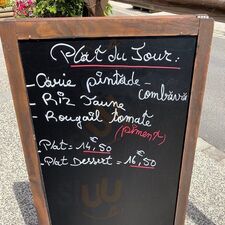 Plat du Jour :
- Cârie pintade -
combâvâ
- Riz Jaune
- Rougail tomate
(piment)
- Plat = 14,50
- Plat Dessert = 16,50